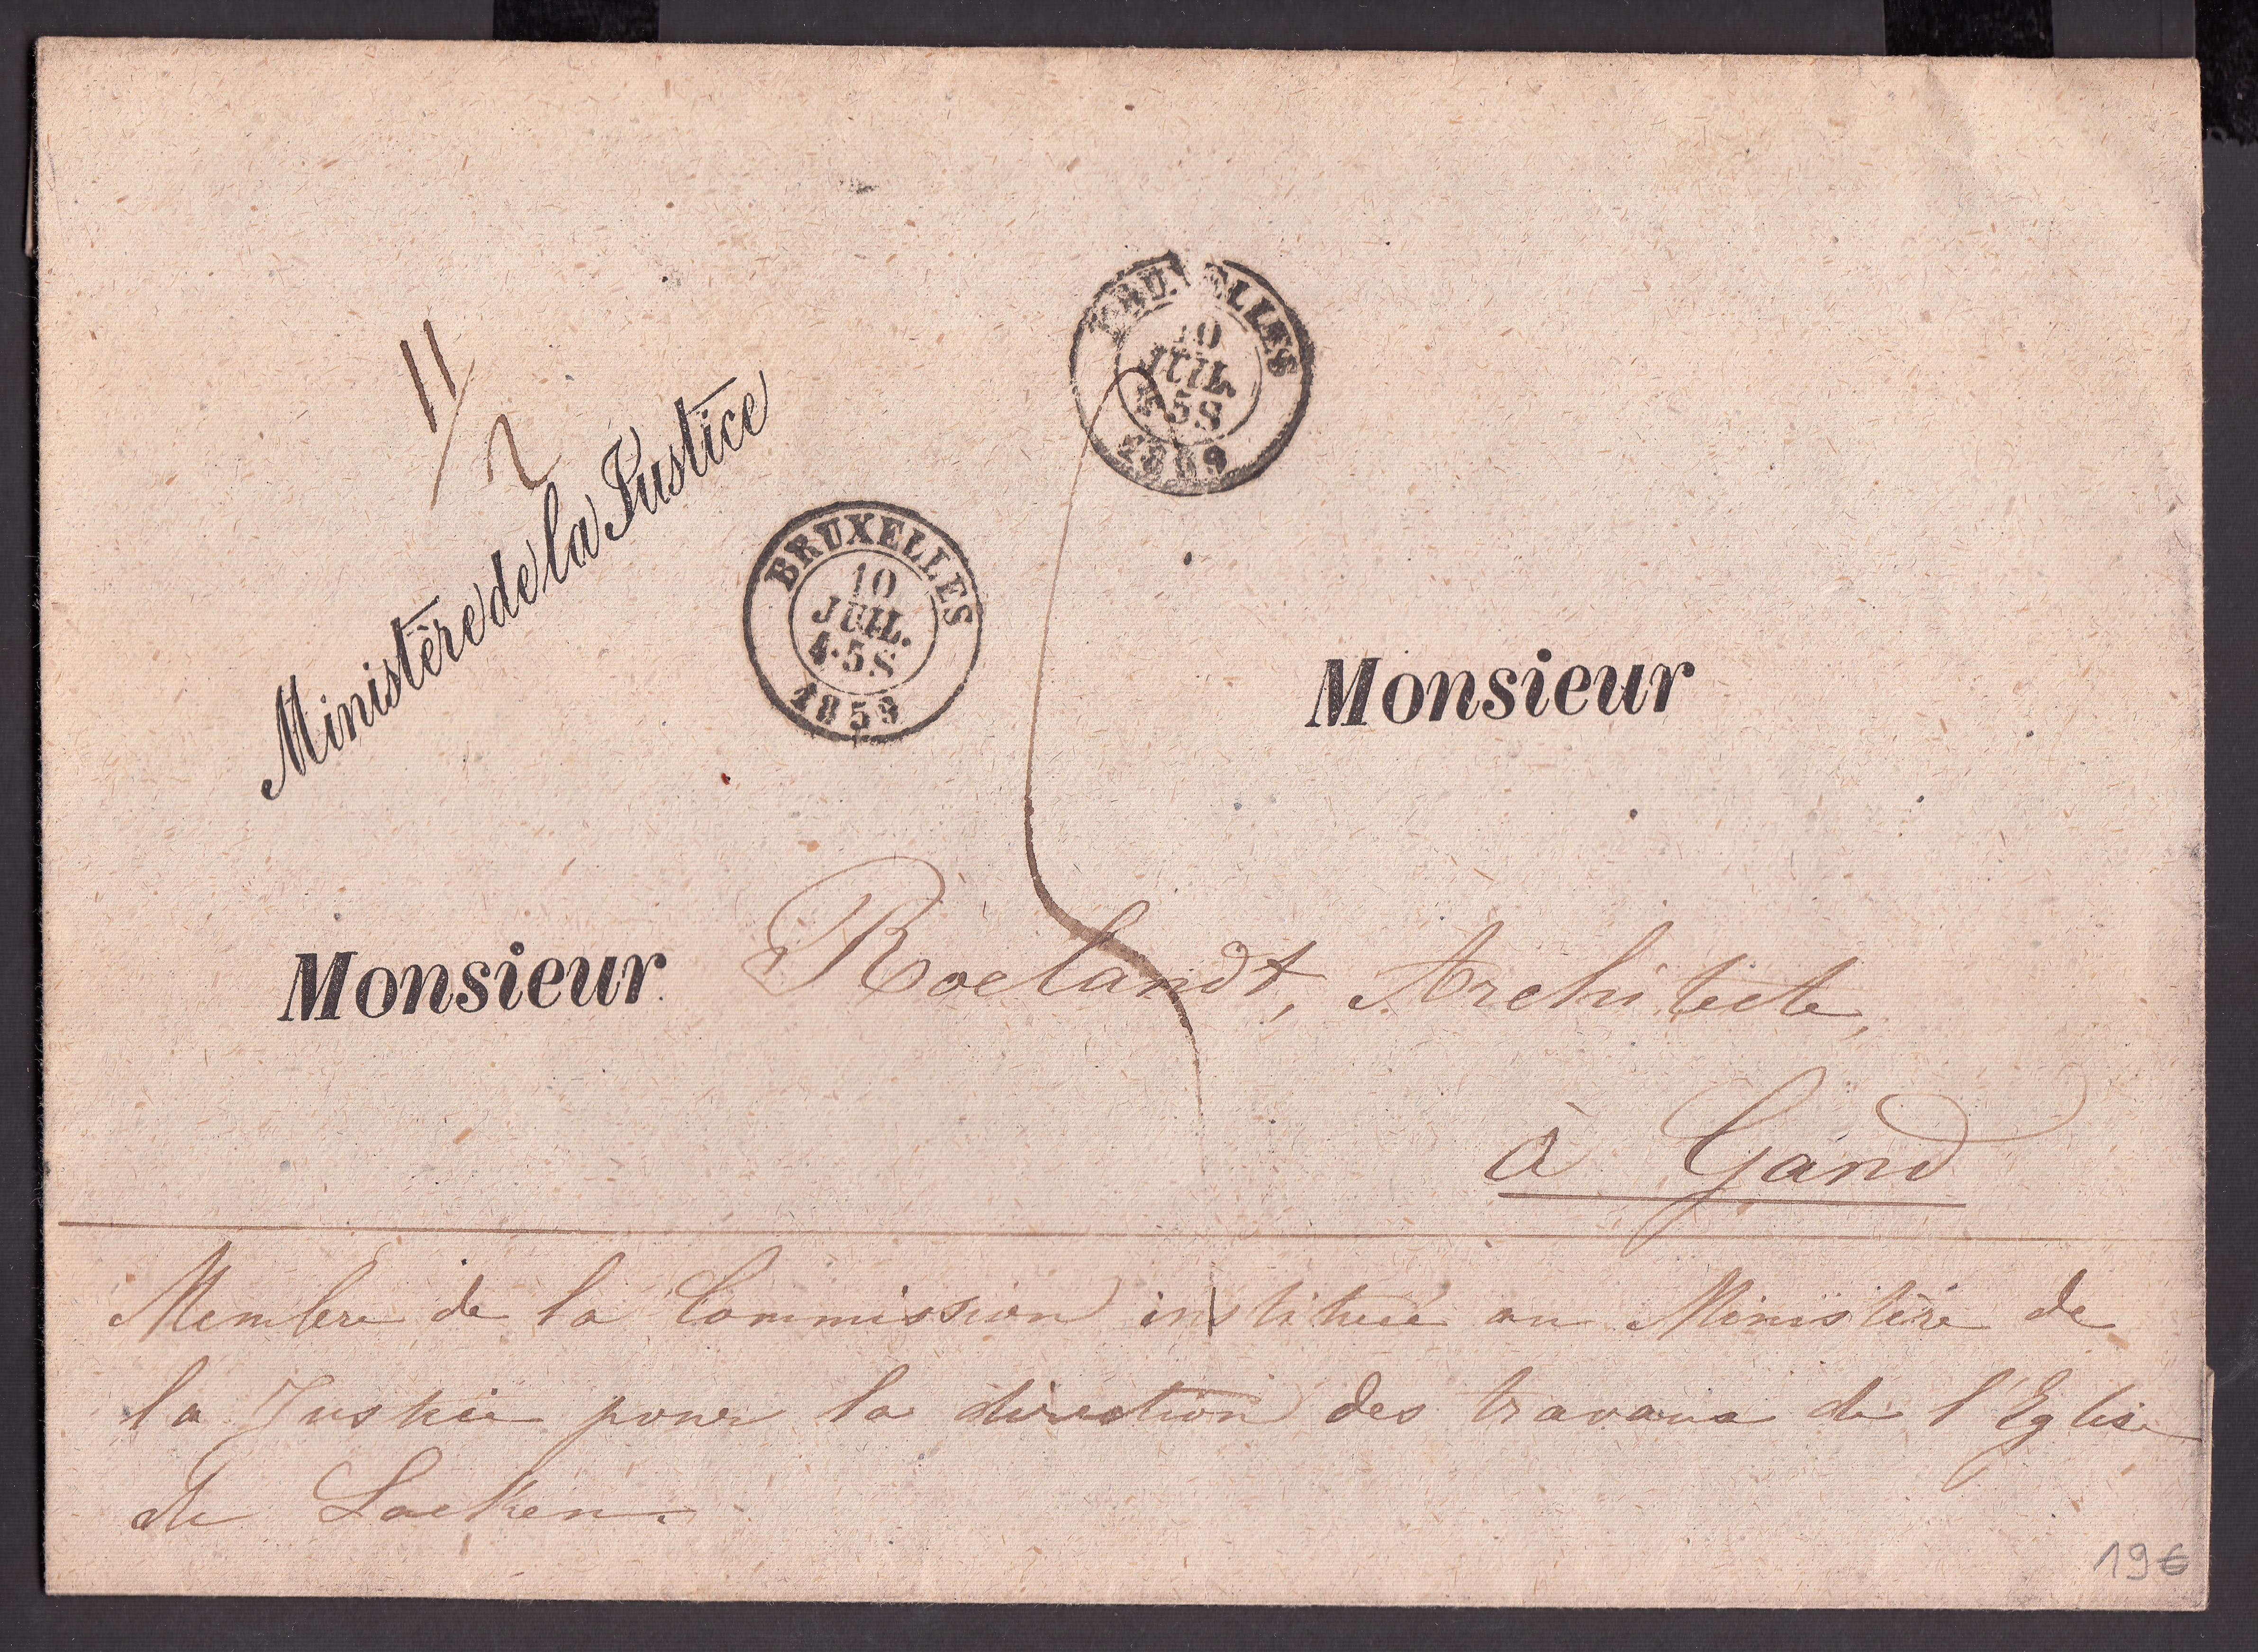 11/2
Ministère de la Justice
BRUXELLES
10
JUIL.
4-5S
1859
BRUXELLES
10
JUIL.
4-5S
1859
Monsieur
Monsieur Roelandt, Architecte,
à Gand
Membre de la Commission instituée au Ministère de
la Justice pour la direction des travaux de l'Eglise
de Laeken.
19€